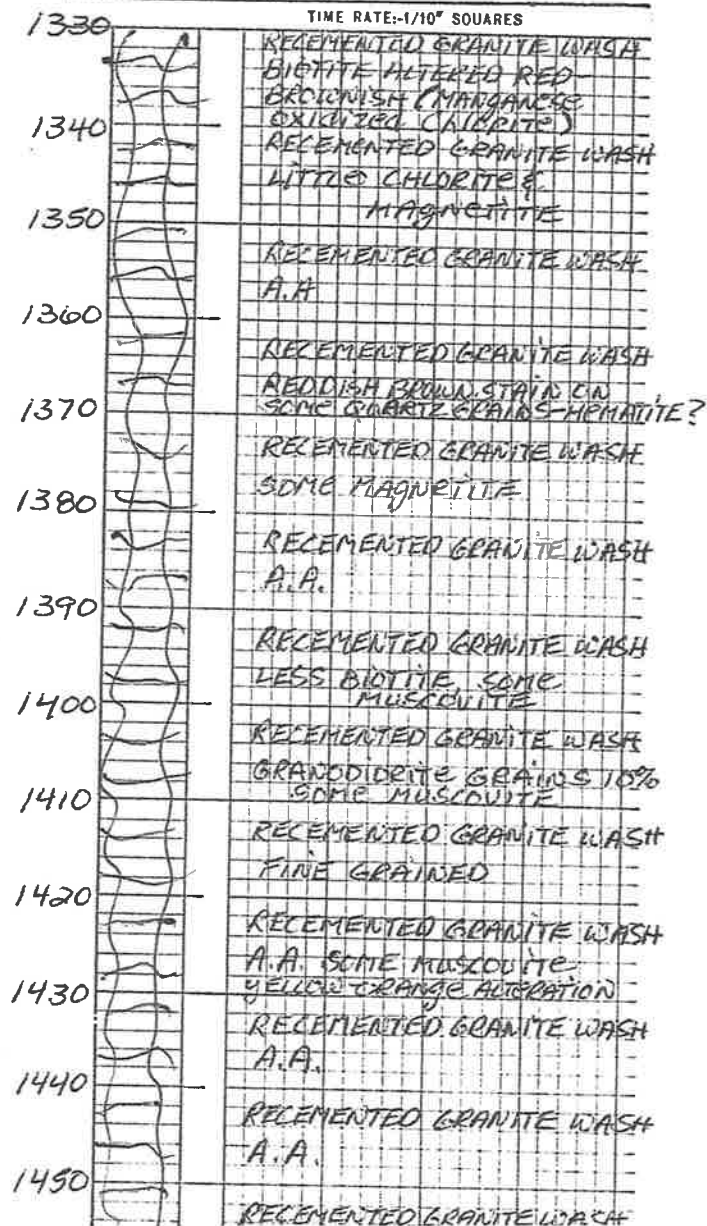 TIME RATE:-1/10" SQUARES
1330
RECEMENTED GRANITE WASH
BIOTITE ALTERED RED-
BROWNISH (MANGANESE
OXIDIZED CHLORITE)
1340
RECEMENTED GRANITE WASH
LITTLE CHLORITE &
MAGNETITE
1350
RECEMENTED GRANITE WASH
A.A
1360
RECEMENTED GRANITE WASH
REDDISH BROWN STAIN ON
SOME QUARTZ GRAINS-HEMATITE?
1370
RECEMENTED GRANITE WASH
SOME MAGNETITE
1380
RECEMENTED GRANITE WASH
A.A.
1390
RECEMENTED GRANITE WASH
LESS BIOTITE, SOME
MUSCOVITE
1400
RECEMENTED GRANITE WASH
GRANODIORITE GRAINS 10%
SOME MUSCOVITE
1410
RECEMENTED GRANITE WASH
FINE GRAINED
1420
RECEMENTED GRANITE WASH
A.A. SOME MUSCOVITE
YELLOW ORANGE ALTERATION
1430
RECEMENTED GRANITE WASH
A.A.
1440
RECEMENTED GRANITE WASH
A.A.
1450
RECEMENTED GRANITE WASH